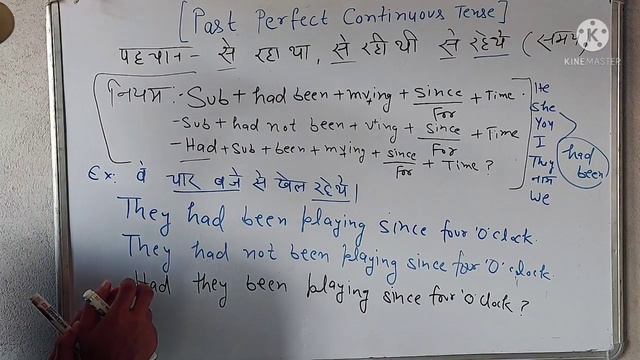 [Past Perfect Continuous Tense]
पहचान - से रहा था, से रही थी से रहे थे (समय)
KINEMASTER
नियम :- Sub + had been + mv+ing + since/For + Time.
- Sub + had not been + v+ing + since/For + Time
- Had + Sub + been + mv+ing + since/For + Time ?
He
She
You
I
They
नाम
We
had been
Ex: वे चार बजे से खेल रहे थे।
They had been playing since four 'O' clock.
They had not been playing since four 'O' clock.
Had they been playing since four 'O' clock ?